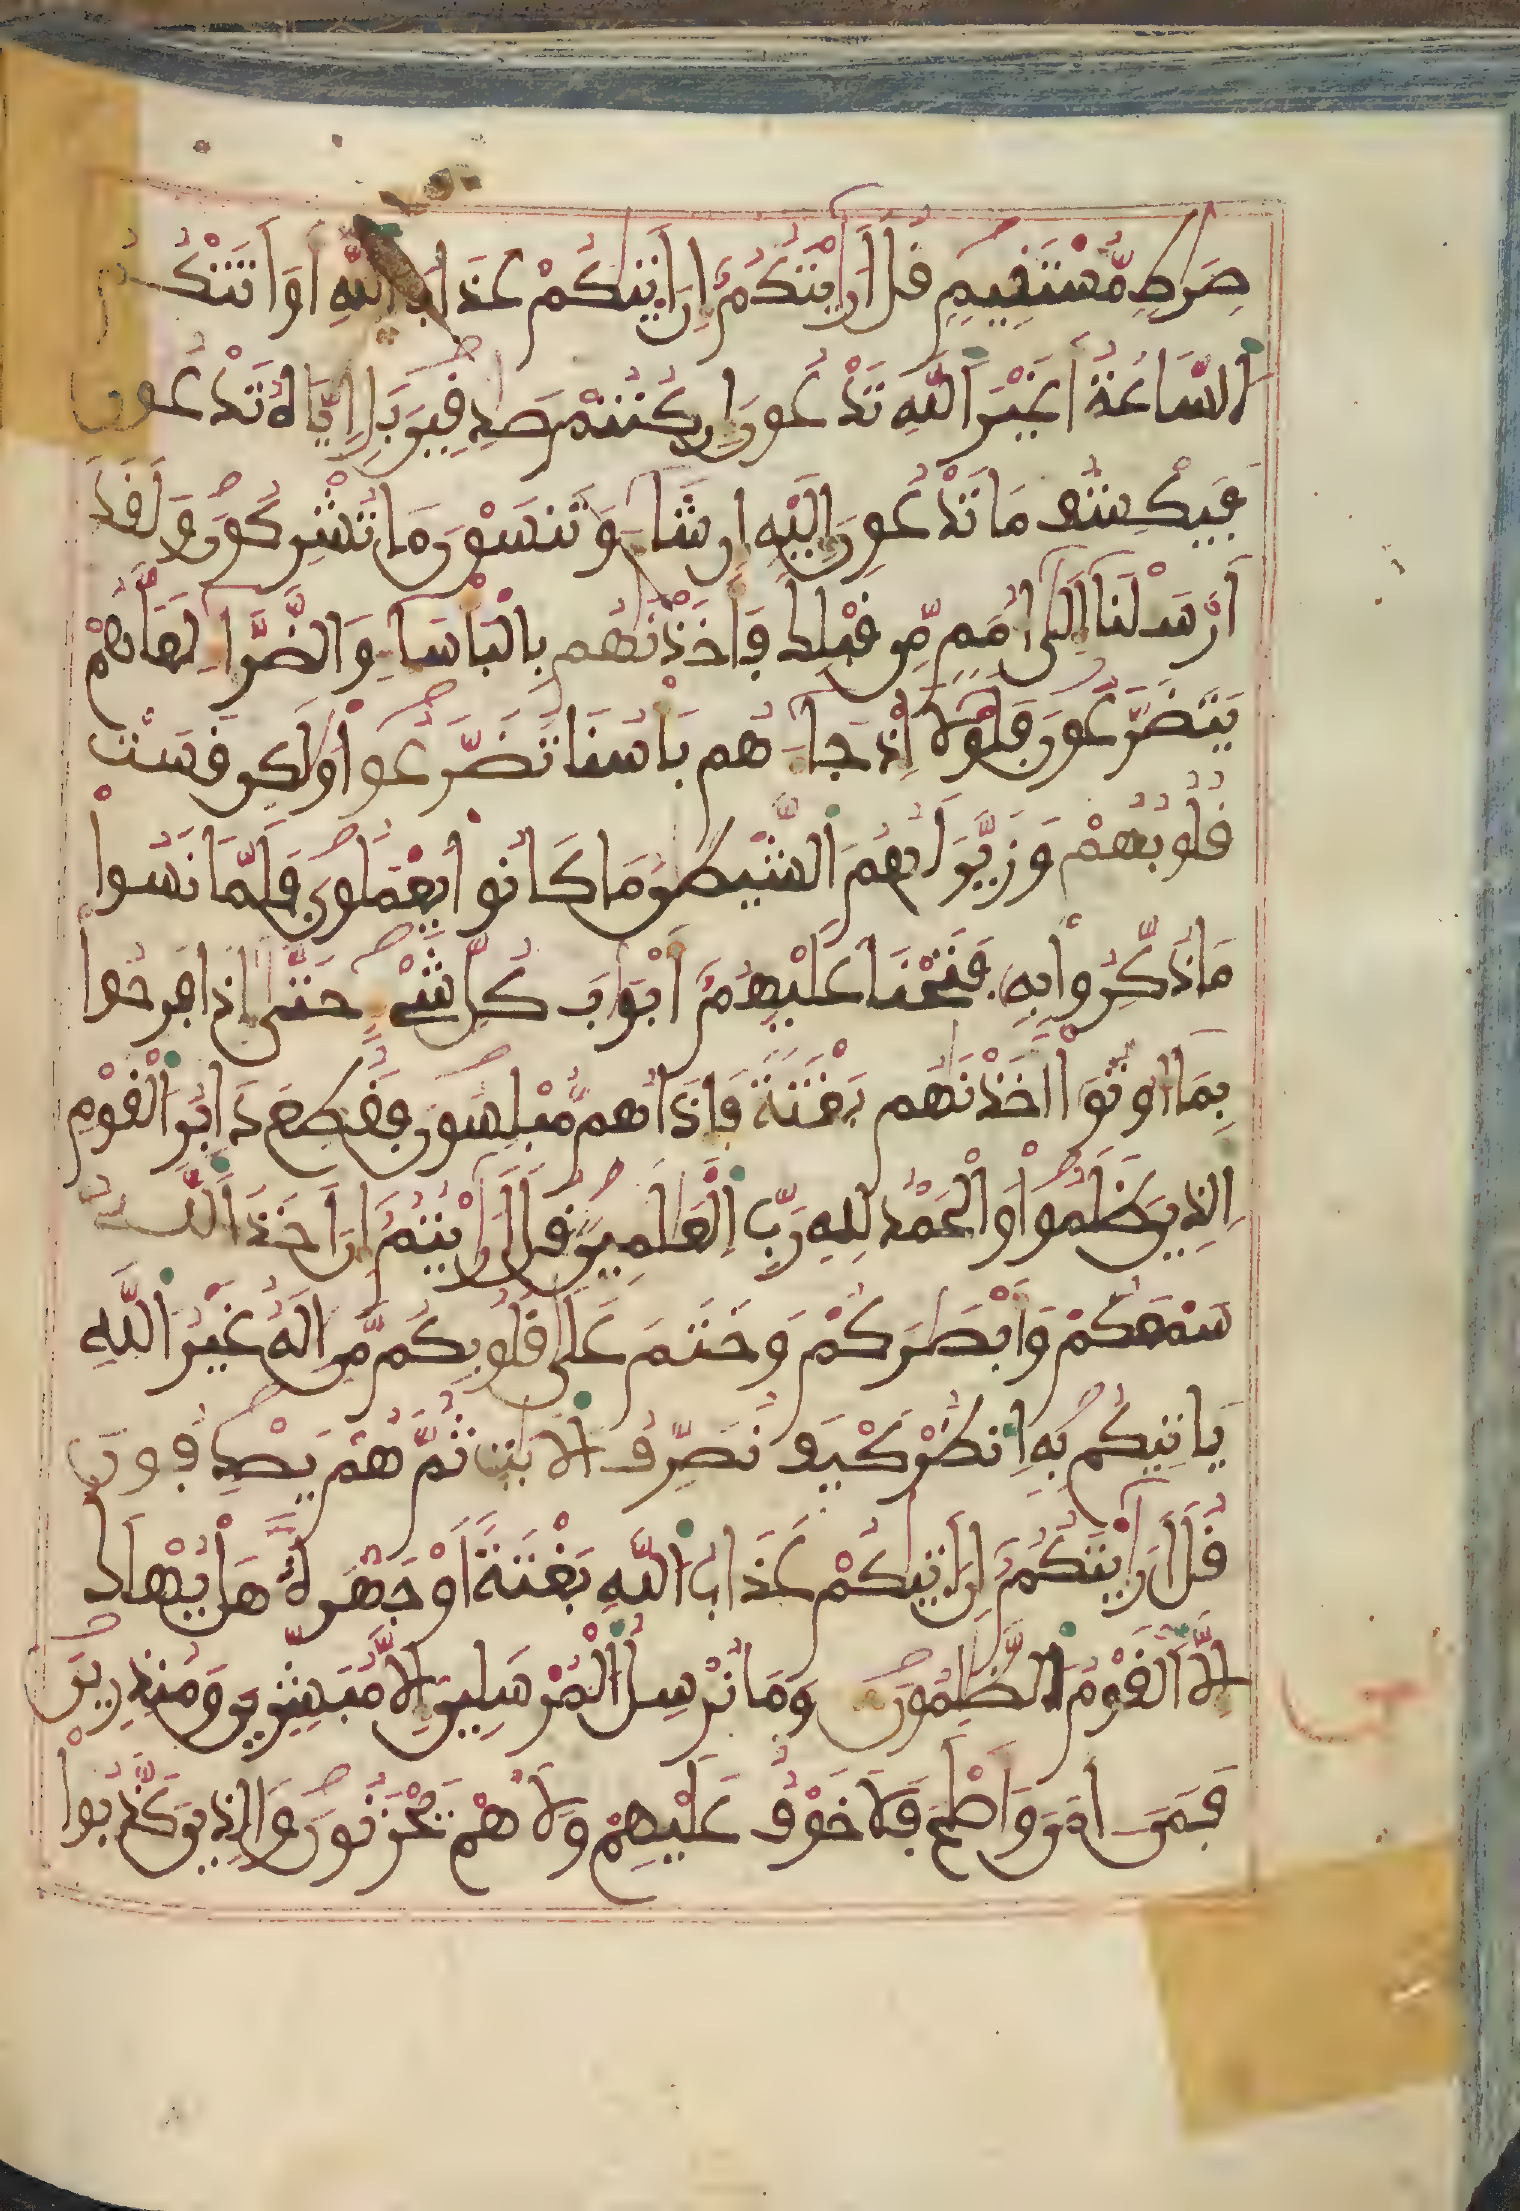 صِرَٰطٍ مُّسْتَفِيمٍ فُلَ اَرَٰيْتَكُمُۥٓ إِنَ اَتٜيٰكُمْ عَذَابُ اُللَّهِ أَوَ اَتَتْكُمُ
اُلسَّاعَةُ أَغَيْرَ اَللَّهِ تَدْعُونَ إِن كُنتُمْ صَٰدِفِينَ بَلِ اِيَّاهُ تَدْعُونَ
فَيَكْشِفُ مَا تَدْعُونَ إِلَيْهِ إِن شَآءَ وَتَنسَوْنَ مَا تُشْرِكُونَ وَلَفَدَ
اَرْسَلْنَآ إِلَىٰٓ أُمَمٍ مِّن فَبْلِكَ فَأَخَذْنَٰهُم بِالْبَأْسَآءِ وَالضَّرَّآءِ لَعَلَّهُمْ
يَتَضَرَّعُونَ فَلَوْلَآ إِذْ جَآءَهُم بَأْسُنَا تَضَرَّعُوا۟ وَلَٰكِن فَسَتْ
فُلُوبُهُمْ وَزَيَّنَ لَهُمُ اُلشَّيْطَٰنُ مَا كَانُوا۟ يَعْمَلُونَ فَلَمَّا نَسُوا۟
مَا ذُكِّرُوا۟ بِهِۦ فَتَحْنَا عَلَيْهِمُۥٓ أَبْوَٰبَ كُلِّ شَےْءٍ حَتَّىٰٓ إِذَا فَرِحُوا۟
بِمَآ أُوتُوٓا۟ أَخَذْنَٰهُم بَغْتَةً فَإِذَا هُم مُّبْلِسُونَ فَفُطِعَ دَابِرُ اُلْفَوْمِ
اِلذِينَ ظَلَمُوا۟ وَالْحَمْدُ لِلهِ رَبِّ اِلْعَٰلَمِينَ فُلَ اَرَٰيْتُمُۥٓ إِنَ اَخَذَ اَللَّهُ
سَمْعَكُمْ وَأَبْصَٰرَكُمْ وَخَتَمَ عَلَىٰ فُلُوبِكُم مَّنِ اِلَٰهٌ غَيْرُ اُللَّهِ
يَاتِيكُم بِهِ اِنظُرْ كَيْفَ نُصَرِّفُ اُلَايَٰتِ ثُمَّ هُمْ يَصْدِفُونَ
فُلَ اَرَٰيْتَكُمُۥٓ إِنَ اَتٜيٰكُمْ عَذَابُ اُللَّهِ بَغْتَةً اَوْ جَهْرَةً هَلْ يُهْلَكُ
إِلَّا اَلْفَوْمُ اُلظَّٰلِمُونَ وَمَا نُرْسِلُ اُلْمُرْسَلِينَ إِلَّا مُبَشِّرِينَ وَمُنذِرِينَ
فَمَنَ اٰمَنَ وَأَصْلَحَ فَلَا خَوْفٌ عَلَيْهِمْ وَلَا هُمْ يَحْزَنُونَ وَالذِينَ كَذَّبُوا۟